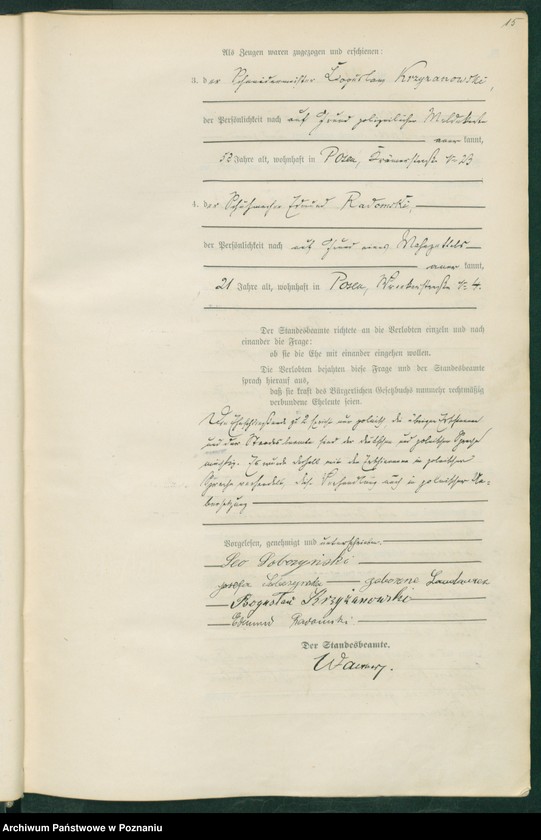 15
Als Zeugen waren zugezogen und erschienen:
3. der Schneidermeister Boguslaw Krzyzanowski,
der Persönlichkeit nach auf Grund polizeilicher Meldekarte
kannt,
52 Jahre alt, wohnhaft in Posen, Krämerstraße No 23
4. der Schuhmacher Edmund Radomski,
der Persönlichkeit nach auf Grund eines
kannt,
21 Jahre alt, wohnhaft in Posen, No 4.
Der Standesbeamte richtete an die Verlobten einzeln und nach
einander die Frage:
ob sie die Ehe mit einander eingehen wollen.
Die Verlobten bejahten diese Frage und der Standesbeamte
sprach hierauf aus,
daß sie kraft des Bürgerlichen Gesetzbuchs nunmehr rechtmäßig
verbundene Eheleute seien.
Die Eheschließende zu 2 spricht nur polnisch, die übrigen Erschienenen
und der Standesbeamte sind der deutschen und polnischen Sprache
mächtig. Es wurde deshalb mit den Erschienenen in polnischer
Sprache verhandelt, Verhandlung auch in polnischer Ue-
bersetzung
Vorgelesen, genehmigt und unterschrieben.
Leo
geborene
Bogusław Krzyżanowski
Edmund Radomski
Der Standesbeamte.
Archiwum Państwowe w Poznaniu